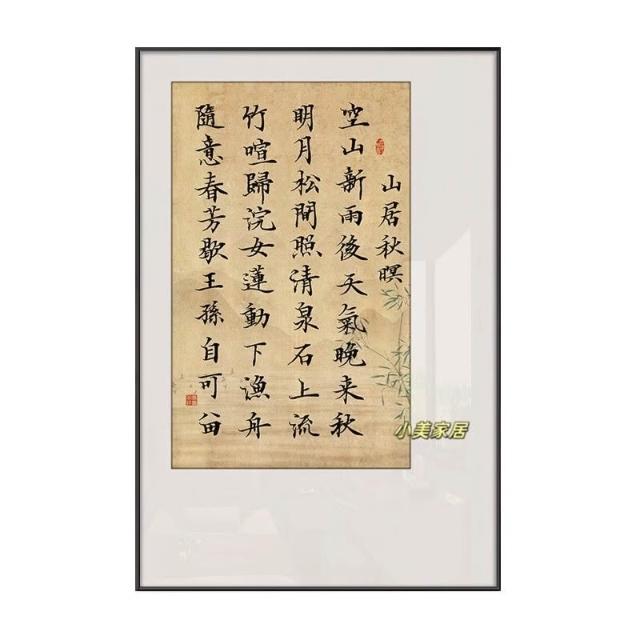 山居秋暝
空山新雨後天氣晚来秋
明月松間照清泉石上流
竹喧歸浣女蓮動下漁舟
隨意春芳歇王孫自可留
小美家居